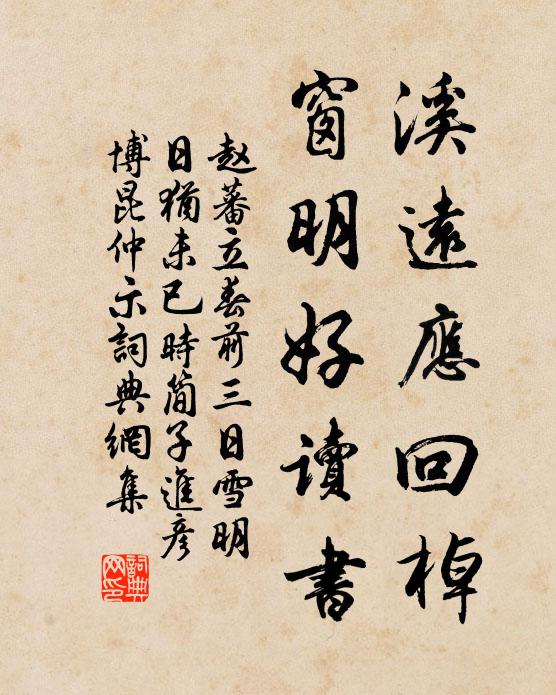 溪遠應回棹
窗明好讀書
赵蕃立春前三日雪明
日猶未已時簡子進彦
博昆仲示詞典網集
詞典网印